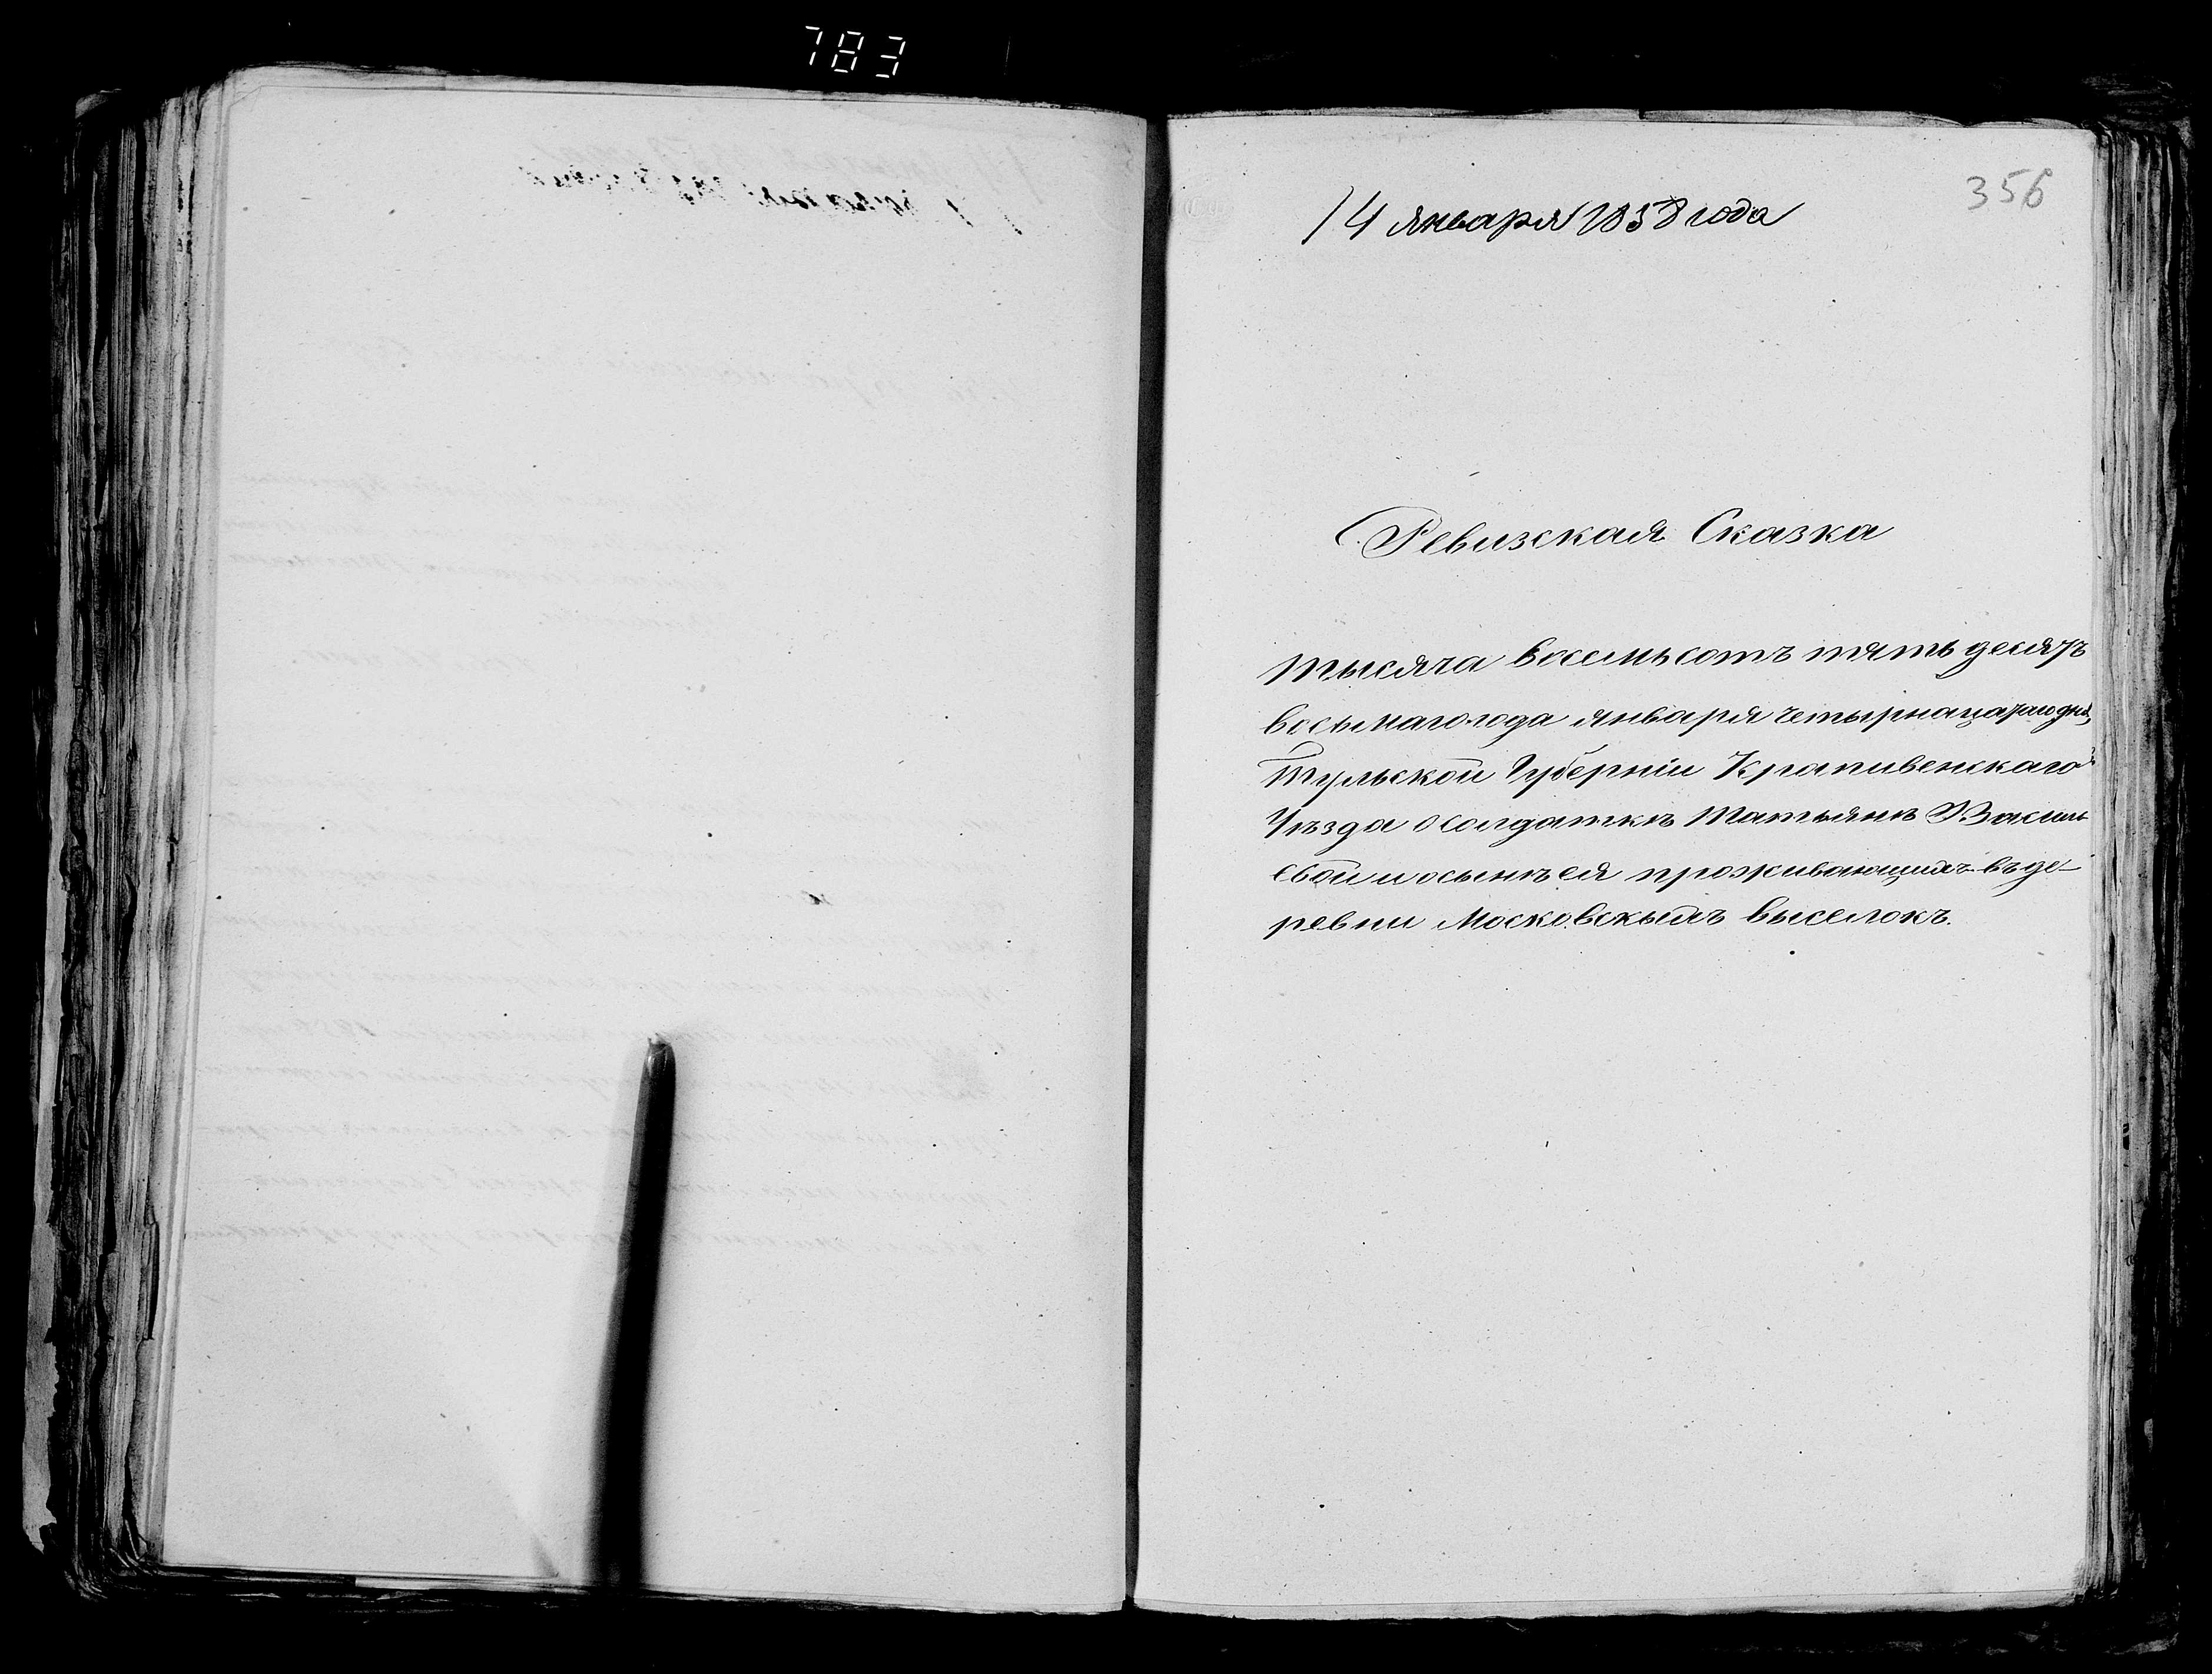 783
356
14 января 1858 года
Ревизская Сказка
тысяча восемьсотъ пятьдесятъ
восьмаго года января четырнацатаго дня,
Тульской Губерніи Крапивенскаго
Уѣзда о солдаткѣ Татьянѣ Василь
евой и о сынѣ ея проживающихъ въ де-
ревни Московскыхъ выселокъ.